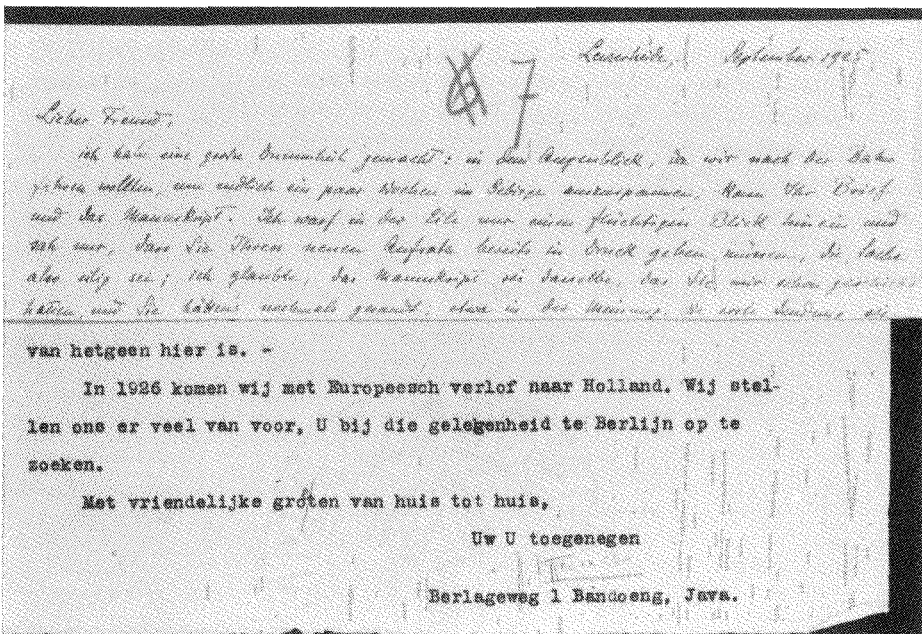 Lenzerheide, September 1925
7
Lieber Freund,
ich habe eine große Dummheit gemacht: in dem Augenblick, da wir nach der Bahn
gehen wollten, um endlich ein paar Wochen im Gebirge auszuspannen, kam Ihr Brief
und das Manuskript. Ich warf in der Eile nur einen flüchtigen Blick hinein und
sah nur, dass Sie Ihren neuen Aufsatz bereits in Druck geben müssen, die Sache
also eilig sei; ich glaubte, das Manuskript sei dasselbe, das Sie mir schon
hatten, und Sie hätten's nochmals gesandt, etwa in der Meinung, die erste Sendung
van hetgeen hier is. -
In 1926 komen wij met Europeesch verlof naar Holland. Wij stel-
len ons er veel van voor, U bij die gelegenheid te Berlijn op te
zoeken.
Met vriendelijke groten van huis tot huis,
Uw U toegenegen
Berlageweg 1 Bandoeng, Java.